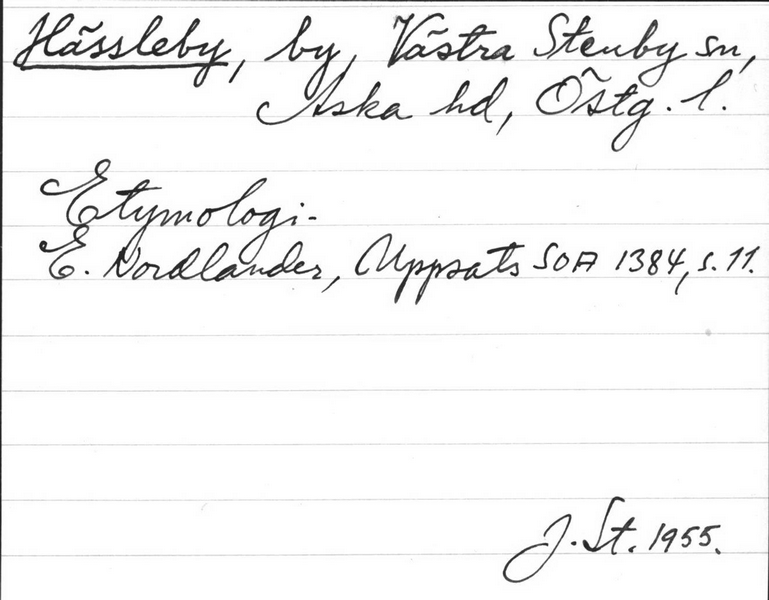 Hässleby, by, Västra Stenby sn,
Aska hd, Östg. l.
Etymologi.
E. Nordlander, Uppsats SOA 1384, s. 11.
J. St. 1955.